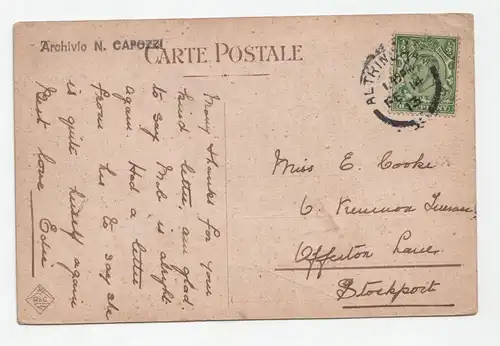 Archivio N. CAPOZZI
CARTE POSTALE
Many thanks for your
kind letter, am glad
to say Mob is alright
again. Had a letter
from her to say she
is quite herself again
Best love Edie
ALTRINCHAM
Miss E. Cooke
6. Kenmor Terrace
Offerton Lane.
Stockport
R&C